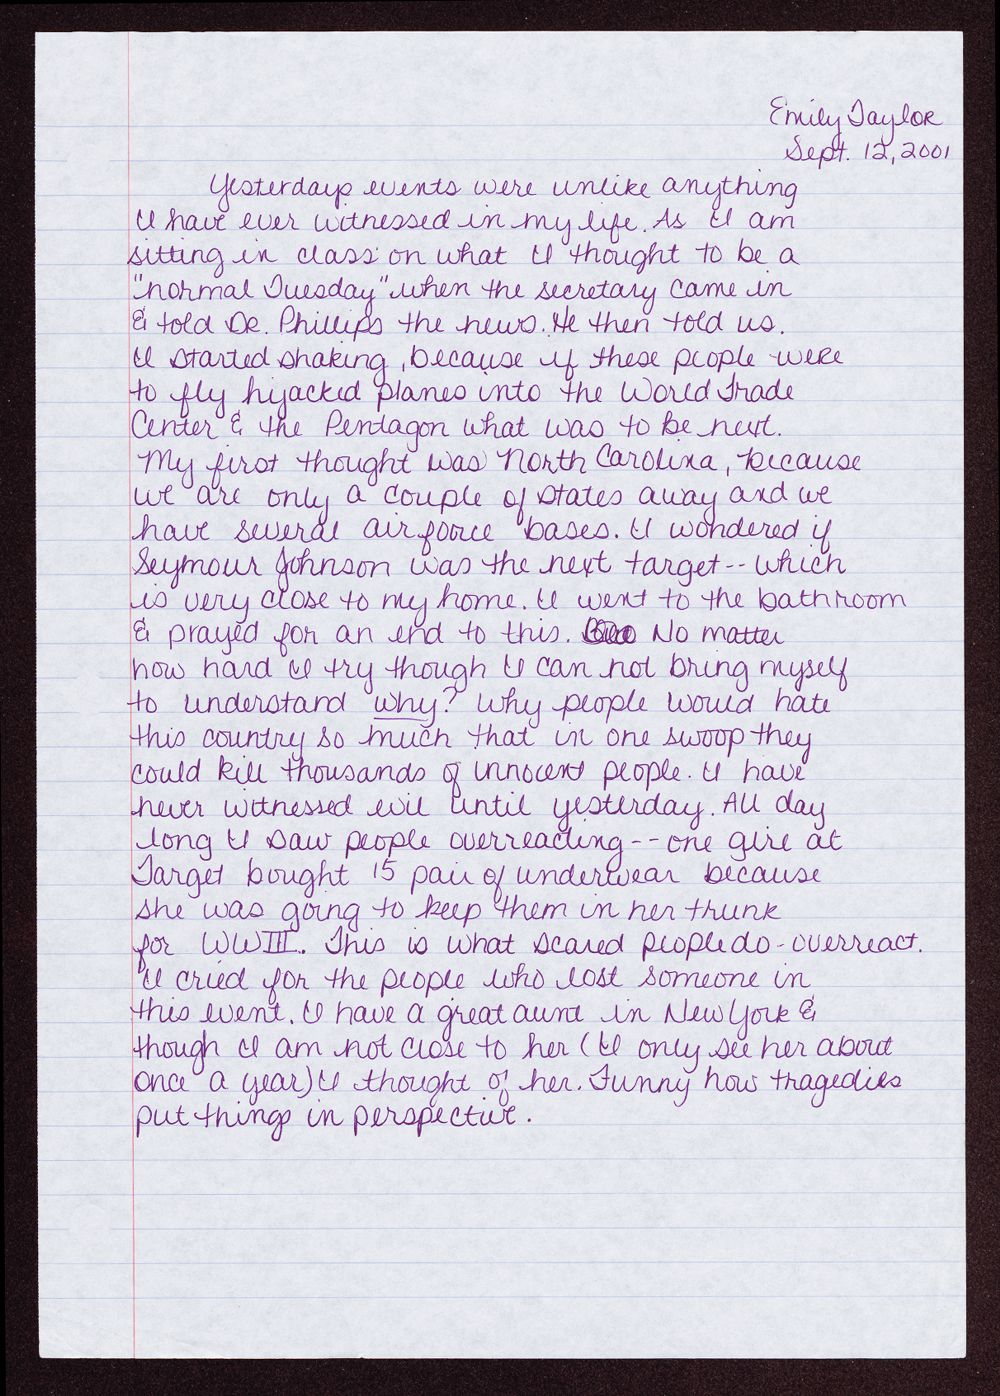 Emily Taylor
Sept. 12, 2001
Yesterdays events were unlike anything
I have ever witnessed in my life. As I am
sitting in class on what I thought to be a
"normal Tuesday" when the secretary came in
& told Dr. Phillips the news. He then told us.
I started shaking, because if these people were
to fly hijacked planes into the World Trade
Center & the Pentagon what was to be next.
My first thought was North Carolina, because
we are only a couple of states away and we
have several air force bases. I wondered if
Seymour Johnson was the next target -- which
is very close to my home. I went to the bathroom
& prayed for an end to this. No matter
how hard I try though I can not bring myself
to understand why? Why people would hate
this country so much that in one swoop they
could kill thousands of innocent people. I have
never witnessed evil until yesterday. All day
long I saw people overreacting -- one girl at
Target bought 15 pair of underwear because
she was going to keep them in her trunk
for WWIII. This is what scared people do - overreact.
I cried for the people who lost someone in
this event. I have a great aunt in New York &
though I am not close to her (I only see her about
once a year) I thought of her. Funny how tragedies
put things in perspective.